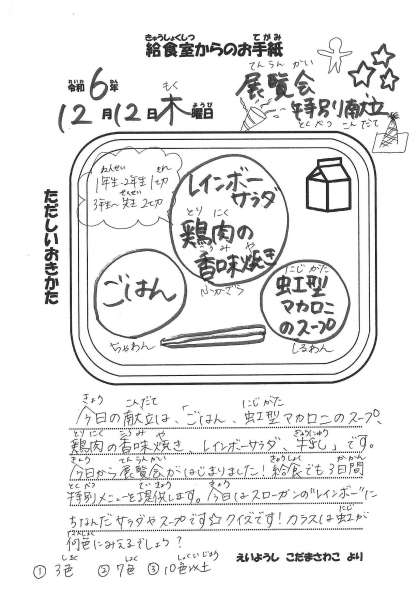 給食室からのお手紙
きゅうしょくしつ てがみ
令和6年
れいわ ねん
12月12日木曜日
もく ようび
てんらんかい
展覧会
特別献立
とくべつ こんだて
ただしいおきかた
ねんせい きれ
1年生~2年生 1切
せんせい
3年生~先生 2切
レインボー
サラダ
とりにく
鶏肉の
こうみや
香味焼き
ごはん
ちゃわん
にじがた
虹型
マカロニ
のスープ
しるわん
きょう こんだて にじがた
今日の献立は、「ごはん、虹型マカロニのスープ、
とりにく こうみや ぎゅうにゅう
鶏肉の香味焼き、レインボーサラダ、牛乳」です。
きょう てんらんかい きゅうしょく かかん
今日から展覧会がはじまりました!給食でも3日間
とくべつ ていきょう きょう
特別メニューを提供します。今日はスローガンの"レインボー"に
にじ
ちなんだサラダやスープです☆クイズです!カラスは虹が
なんしょく
何色にみえるでしょう?
しょく しょく しょくいじょう
① 3色 ② 7色 ③ 10色以上
えいようし こだまさわこ より